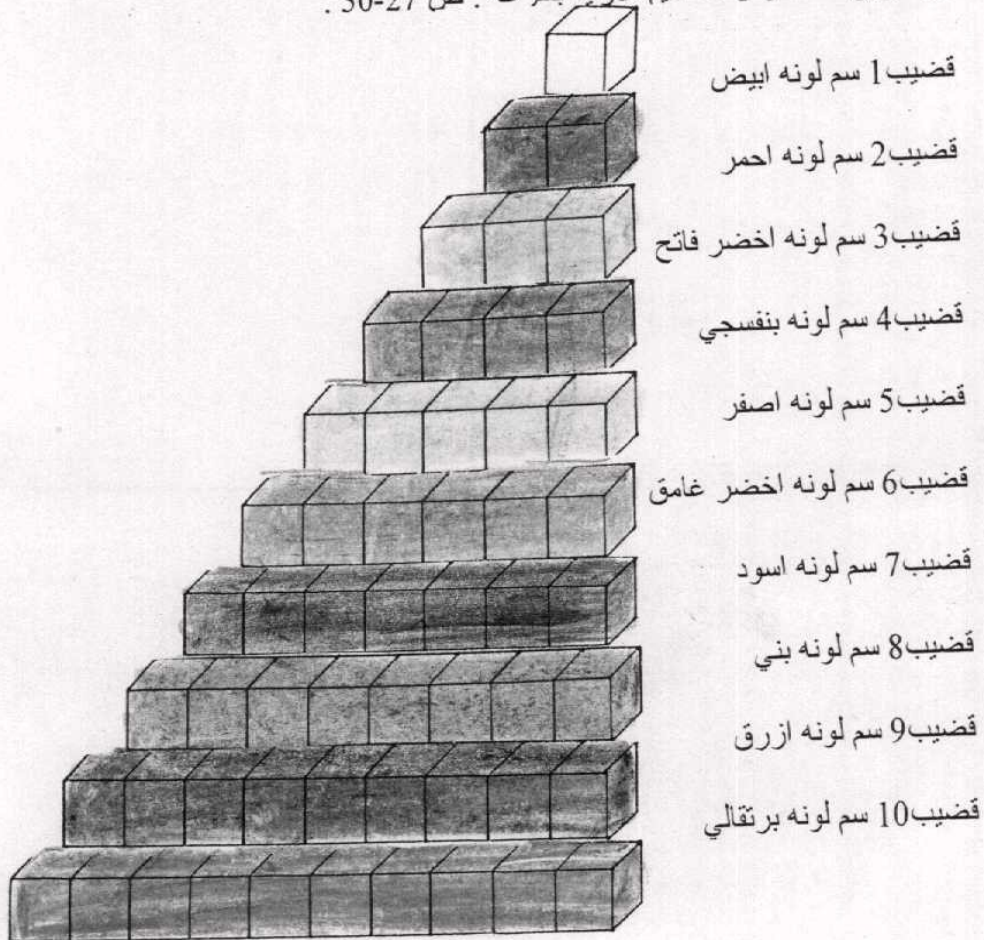 ص 27-30 .
قضيب1 سم لونه ابيض
قضيب2 سم لونه احمر
قضيب3 سم لونه اخضر فاتح
قضيب4 سم لونه بنفسجي
قضيب5 سم لونه اصفر
قضيب6 سم لونه اخضر غامق
قضيب7 سم لونه اسود
قضيب8 سم لونه بني
قضيب9 سم لونه ازرق
قضيب10 سم لونه برتقالي